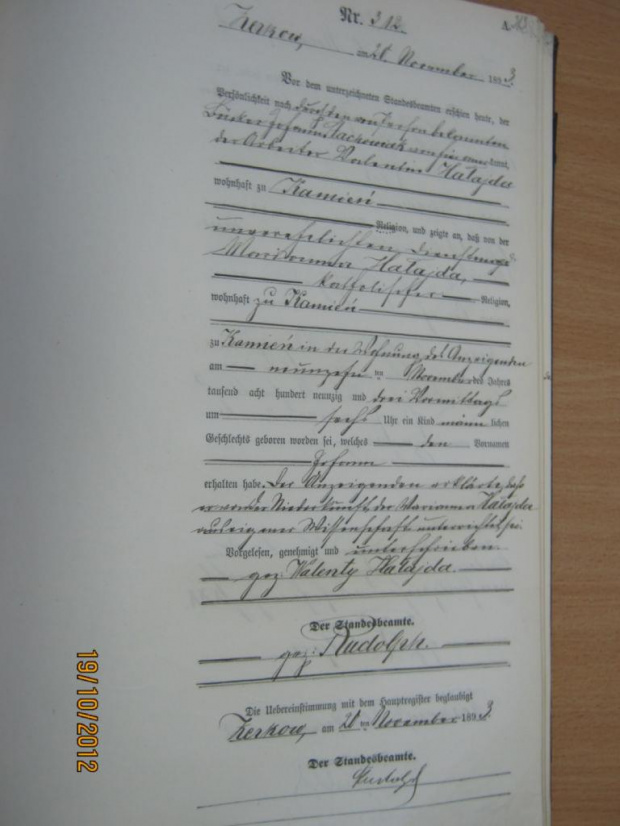 Nr. 312.
Zerkow, am 21 November 1893
Vor dem unterzeichneten Standesbeamten erschien heute, der
Persönlichkeit nach durch den von Person bekannten
Bäcker Johann
der Arbeiter Valentin Hałajda
wohnhaft zu Kamień
Religion, und zeigte an, daß von der
unverehelichten Dienstmagd
Marianna Hałajda,
katholischer Religion,
wohnhaft zu Kamień
zu Kamień in der Wohnung des Anzeigenden
am neunzehn ten November des Jahres
tausend acht hundert neunzig und drei Vormittags
um sechs Uhr ein Kind männlichen
Geschlechts geboren worden sei, welches den Vornamen
Johann
erhalten habe. Der Anzeigenden erklärte, daß
er von der Niederkunft der Marianna Hałajda
aus eigener Wissenschaft unterrichtet sei.
Vorgelesen, genehmigt und unterschrieben
gez: Walenty Hałajda.
Der Standesbeamte.
gez: Rudolph.
Die Uebereinstimmung mit dem Hauptregister beglaubigt
Zerkow, am 21 ten November 1893.
Der Standesbeamte.
Rudolph
19/10/2012